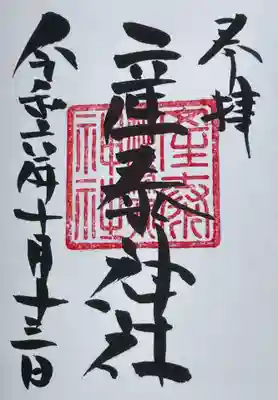 奉拝
産泰神社
令和六年十月十三日
産泰
神社